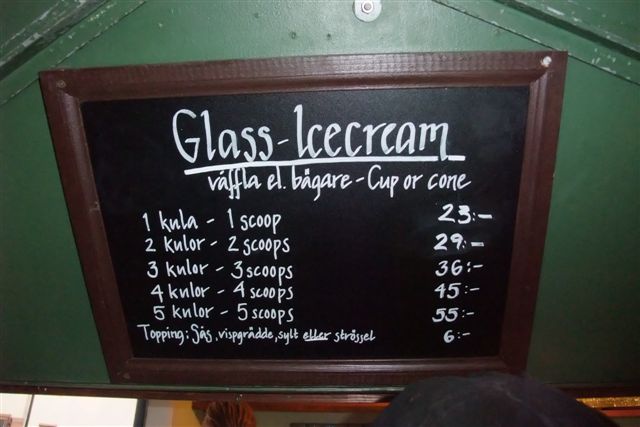 Glass - Icecream
våffla el. bägare - Cup or cone
1 kula - 1 scoop 23:-
2 kulor - 2 scoops 29:-
3 kulor - 3 scoops 36:-
4 kulor - 4 scoops 45:-
5 kulor - 5 scoops 55:-
Topping: Sås, vispgrädde, sylt eller strössel 6:-